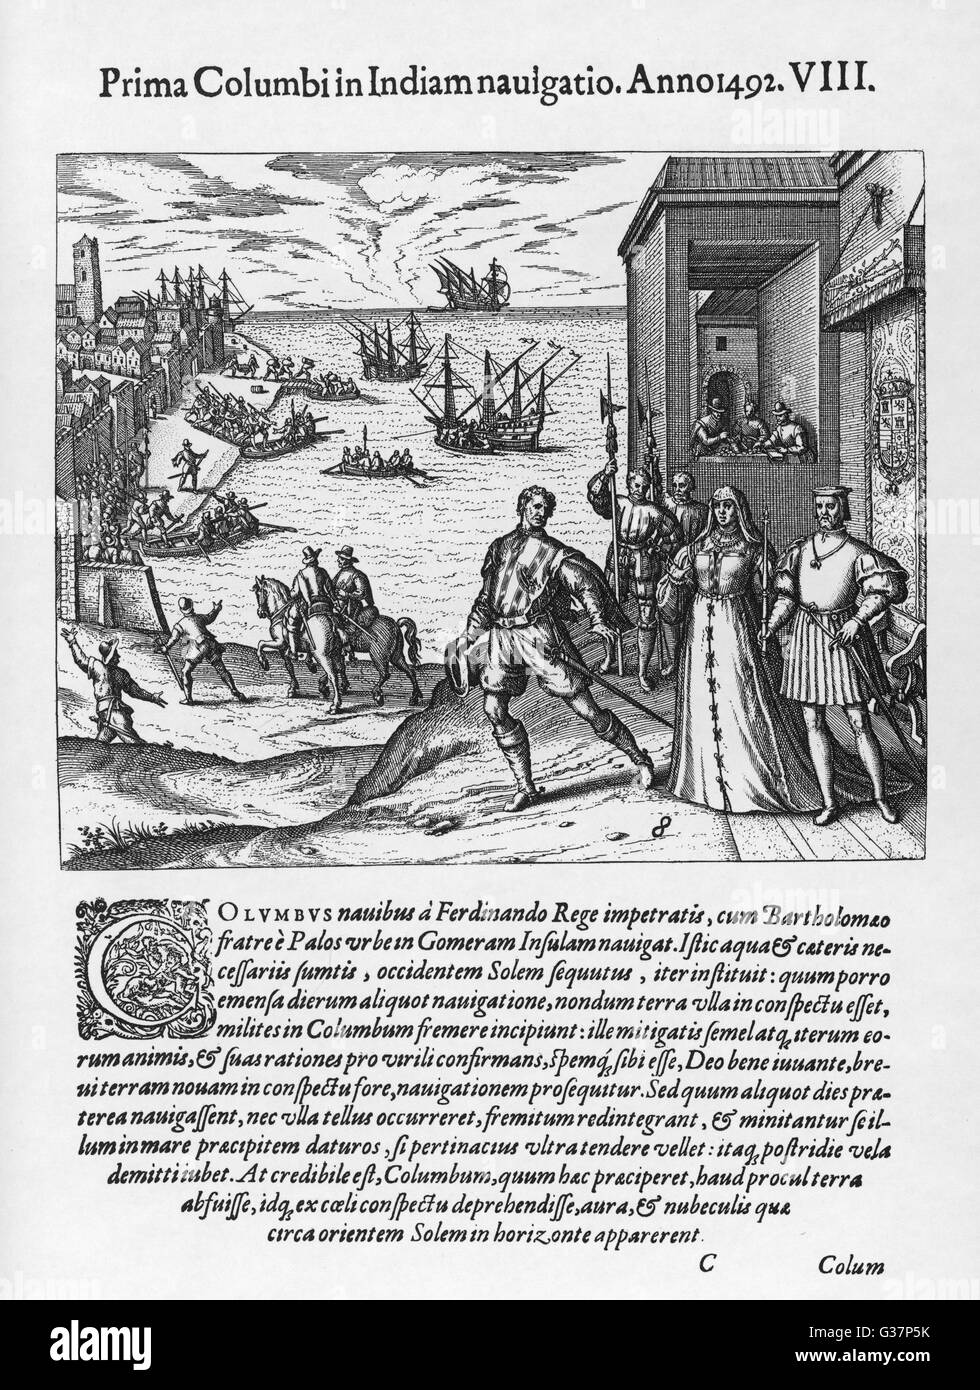 Prima Columbi in Indiam nauigatio. Anno 1492. VIII.
8
COLVMBVS nauibus à Ferdinando Rege impetratis, cum Bartholomæo
fratre è Palos vrbe in Gomeram Insulam nauigat. Istic aqua & cæteris ne-
cessariis sumtis, occidentem Solem sequutus, iter instituit: quum porro
emensa dierum aliquot nauigatione, nondum terra vlla in conspectu esset,
milites in Columbum fremere incipiunt: ille mitigatis semel atq; iterum eo-
rum animis, & suas rationes pro virili confirmans, spemq́; sibi esse, Deo bene iuuante, bre-
ui terram nouam in conspectu fore, nauigationem prosequitur. Sed quum aliquot dies præ-
terea nauigassent, nec vlla tellus occurreret, fremitum redintegrant, & minitantur se il-
lum in mare præcipitem daturos, si pertinacius vltra tendere vellet: itaq; postridie vela
demitti iubet. At credibile est, Columbum, quum hæc præciperet, haud procul terra
abfuisse, idq́; ex cœli conspectu deprehendisse, aura, & nubeculis quæ
circa orientem Solem in horizonte apparerent.
C Colum
alamy
Image ID: G37P5K
www.alamy.com